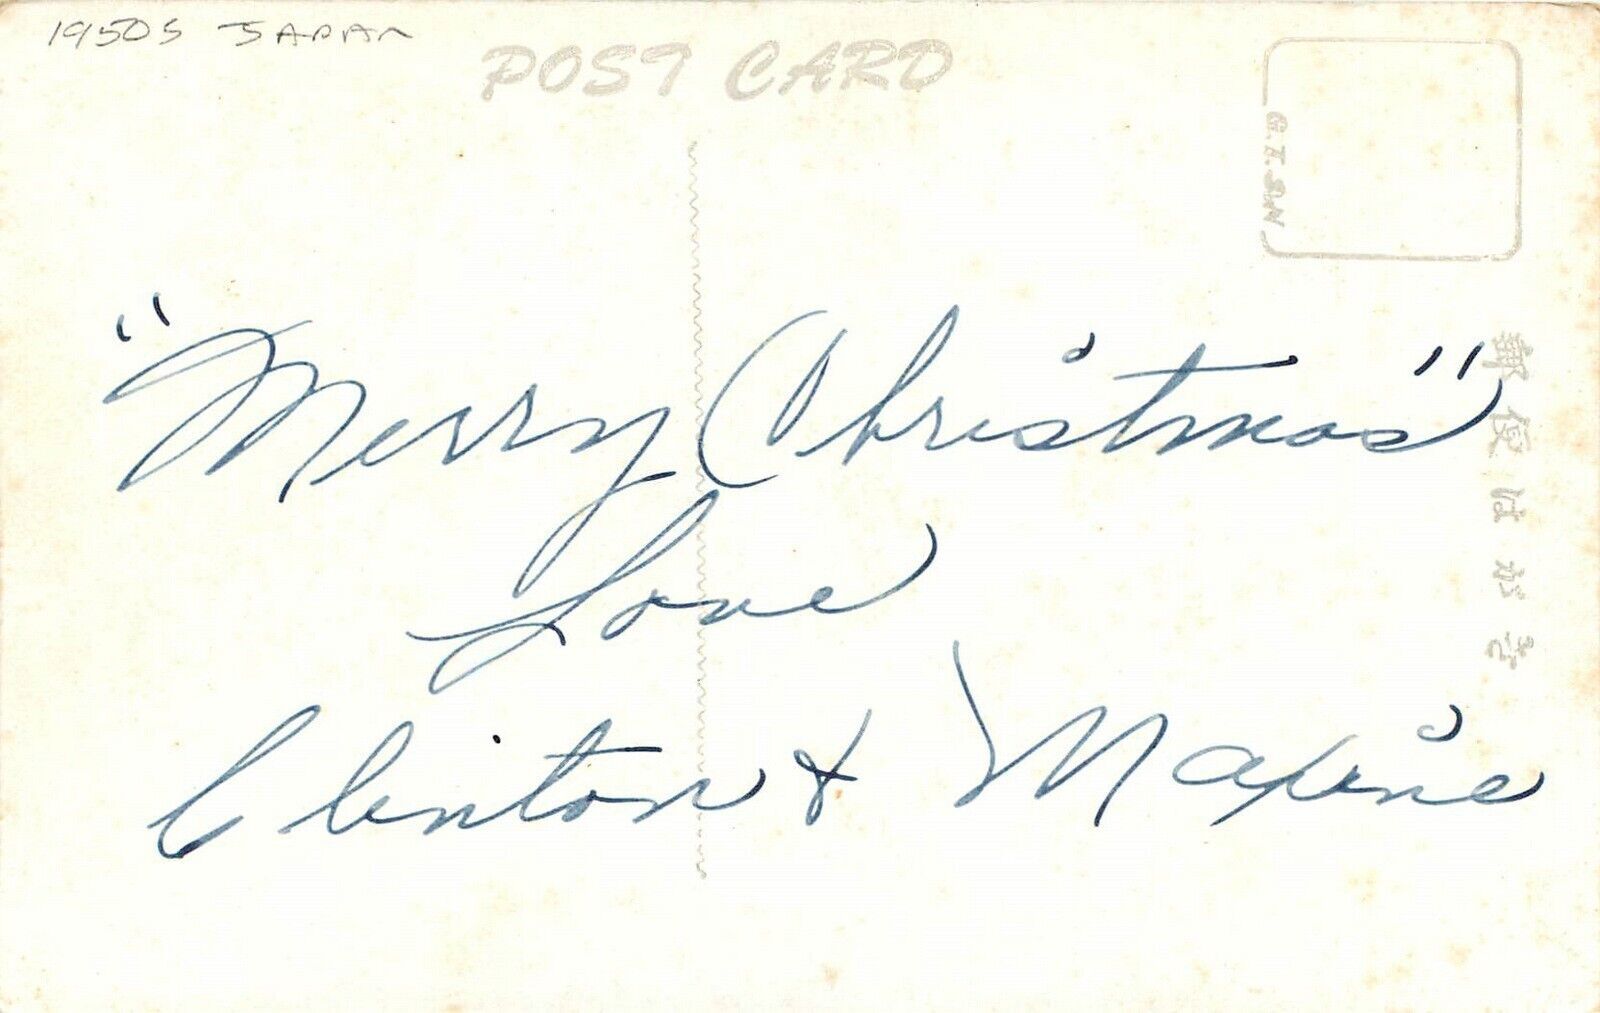 1950s JAPAN
POST CARD
"Merry Christmas"
Love
Clinton & Maxine
郵便はがき